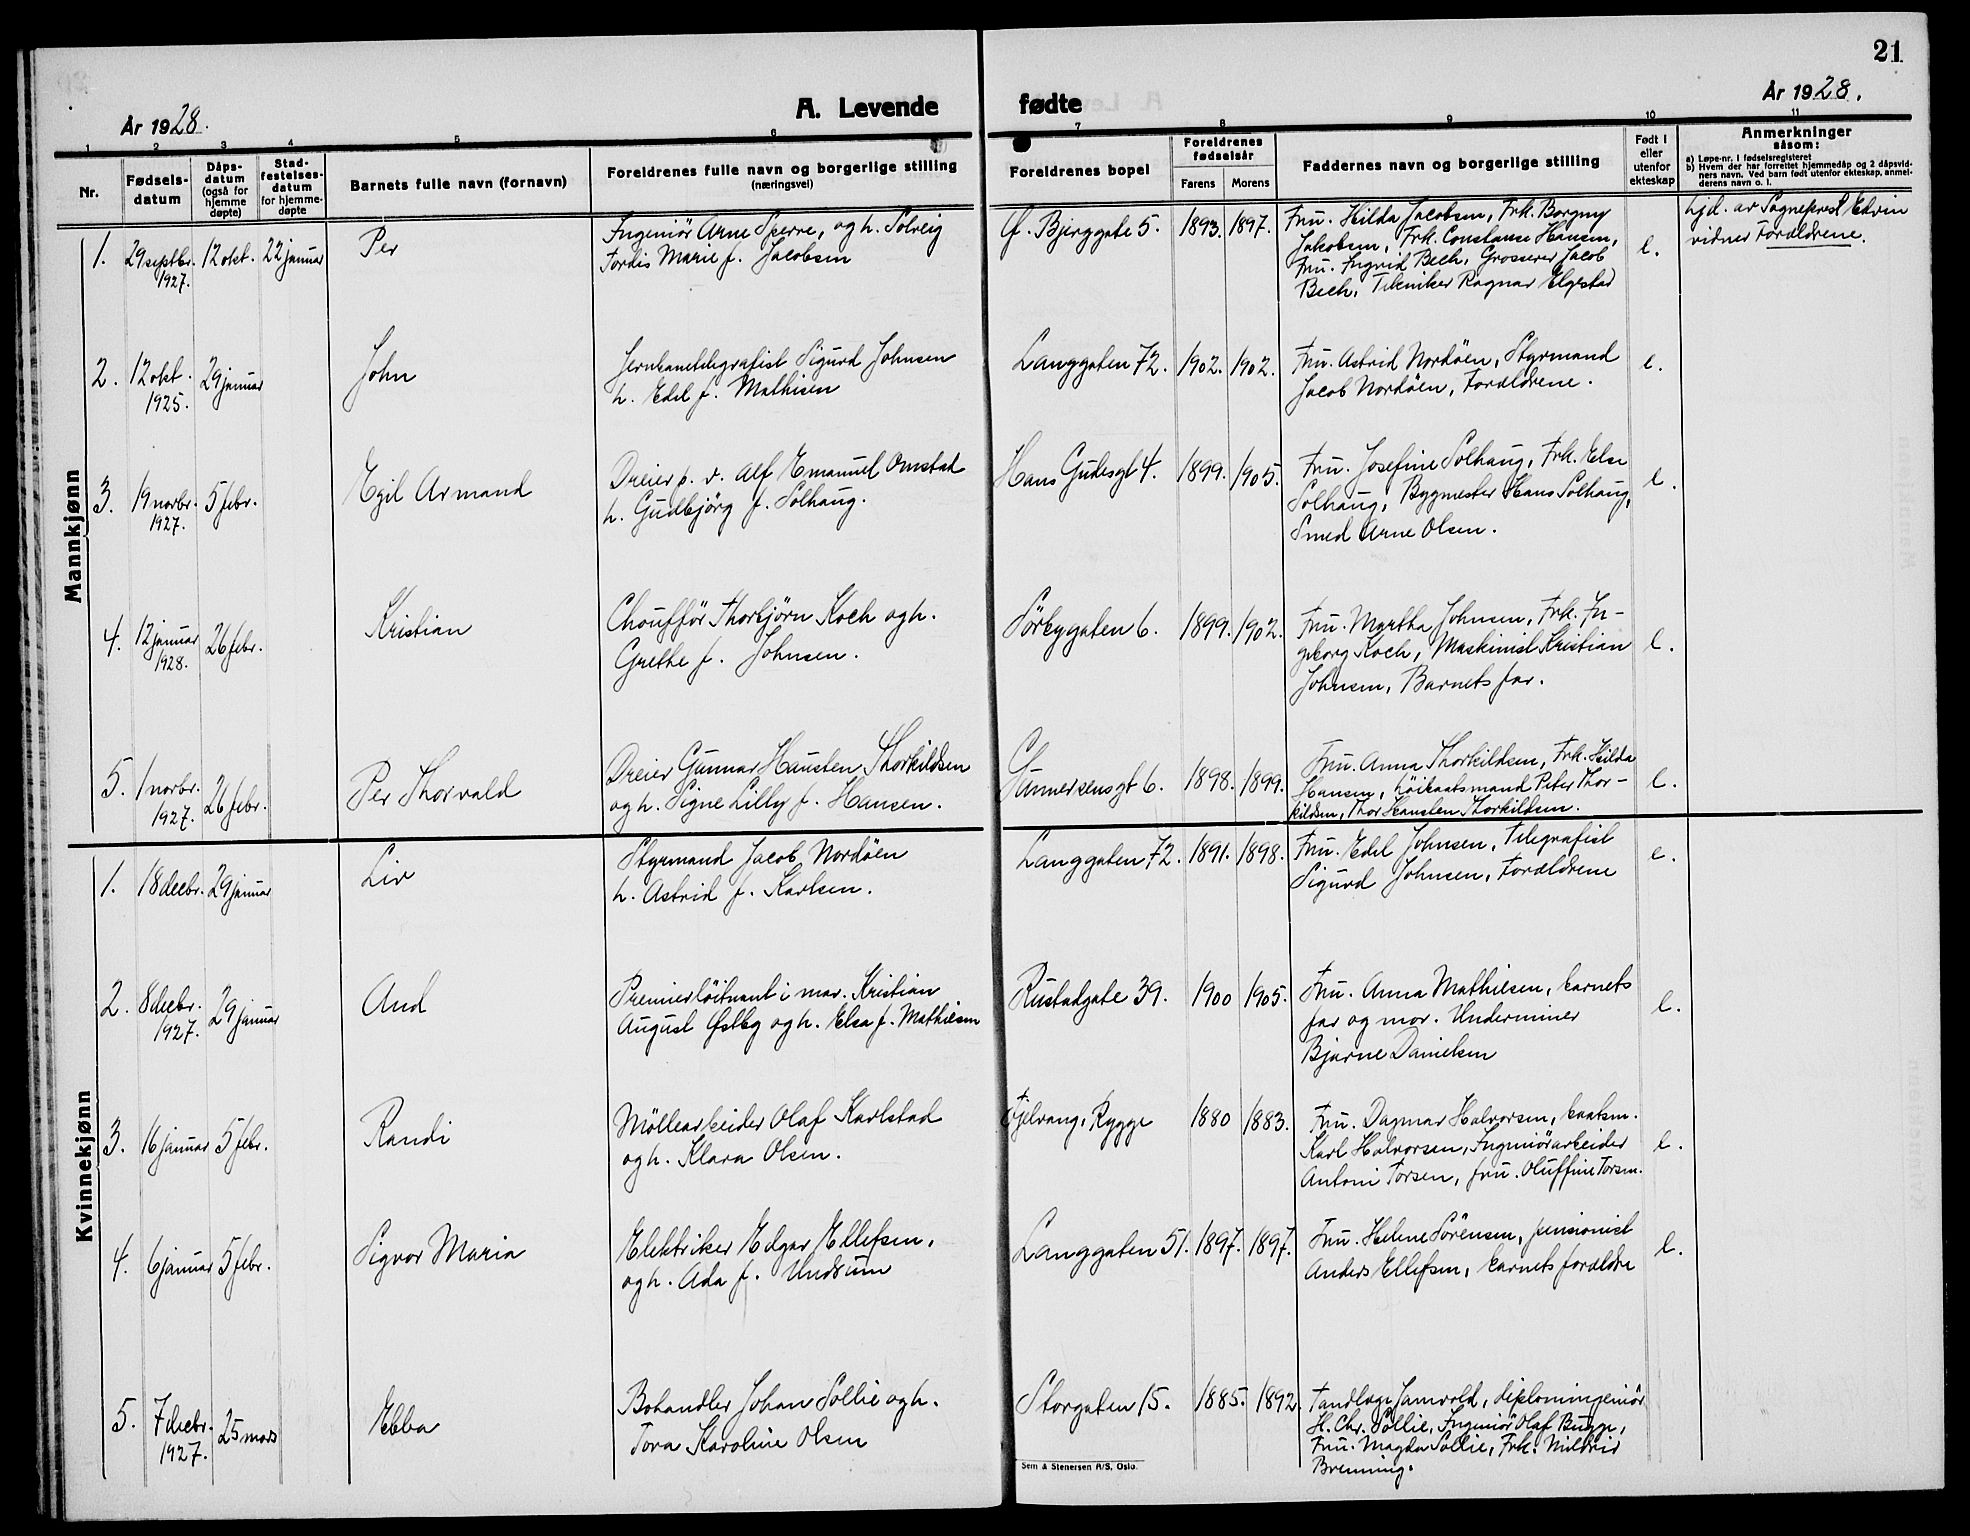 21
År 1928.
A. Levende fødte
År 1928.
1 2 3 4 5 6 7 8 9 10 11
Nr.
Fødsels-
datum
Dåps-
datum
(også for
hjemme
døpte)
Stad-
festelses-
datum
for hjemme-
døpte
Barnets fulle navn (fornavn)
Foreldrenes fulle navn og borgerlige stilling
(næringsvei)
Foreldrenes bopel
Foreldrenes
fødselsår
Farens Morens
Faddernes navn og borgerlige stilling
Født i
eller
utenfor
ekteskap
Anmerkninger
såsom:
a) Løpe-nr. i fødselsregisteret
b) Hvem der har forrettet hjemmedåp og 2 dåpsvid-
ners navn. Ved barn født utenfor ekteskap, anmel-
derens navn o. l.
Mannkjønn
1. 29 septbr. 1927. 12 okt. 22 januar
Per
Ingeniör Arne Sperre, og h. Solveig
Tordis Marie f. Jacobsen
Bjerggate 5. 1893. 1897.
Fru. Hilda Jacobsen, Frk. Borgny
Jakobsen, Frk. Constanse Hansen,
Fru. Ingrid Bech, Grosserer Jacob
Bech, Tekniker Ragnar Elgestad
e.
hjd. av Sogneprest Edvin
vidner Forældrene.
2. 12 okt. 1925. 29 januar
John
Jernbanetelegrafist Sigurd Johnsen
h. Edel f. Mathisen
Langgaten 72. 1902. 1902.
Fru. Astrid Nordöen, Styrmand
Jacob Nordöen, Forældrene.
e.
3. 19 novbr. 1927. 5 febr.
Egil Armand
Dreier p. v. Alf Emanuel Onstad
h. Gudbjörg f. Solhaug.
Hans Gudesgt 4. 1899. 1905.
Fru. Josefine Solhaug, Frk. Else
Solhaug, Bygmester Hans Solhaug,
Smed Arne Olsen.
e.
4. 12 januar 1928. 26 febr.
Kristian
Chouffför Thorbjörn Koch og h.
Grethe f. Johnsen.
Sörbygaten 6. 1899. 1902.
Fru. Martha Johnsen, Frk. In-
geborg Koch, Maskinist Kristian
Johnsen, Barnets far.
e.
5. 1 novbr. 1927. 26 febr.
Per Thorvald
Dreier Gunnar Hansten Thorkildsen
og h. Signe Lilly f. Hansen.
Gunnersensgt 6. 1898. 1899.
Fru. Anna Thorkildsen, Frk. Hilda
Hansen, höibaatsmand Peter Thor-
kildsen, Thor Hansten Thorkildsen.
e.
Kvinnekjønn
1. 18 decbr. 29 januar
Liv
Styrmand Jacob Nordöen
h. Astrid f. Karlsen.
Langgaten 72. 1891. 1898.
Fru. Edel Johnsen, Telegrafist
Sigurd Johnsen, Forældrene
e.
2. 8 decbr. 1927. 29 januar
Aud
Premierlöitnant i mar. Kristian
August Østby og h. Elsa f. Mathiesen
Rustadgate 39. 1900 1905.
Fru. Anna Mathiesen, barnets
far og mor. Underminer
Bjarne Danielsen
e.
3. 16 januar 5 febr.
Randi
Möllearbeider Olaf Karlstad
og h. Klara Olsen.
Fjelvang, Rygge 1880 1883.
Fru. Dagmar Halvorsen, baatsm.
Karl Halvorsen, Ingeniörarbeider
Antoni Torsen, fru. Oluffine Torsen.
e.
4. 6 januar 5 febr.
Sigvor Maria
Elektriker Edgar Ellefsen,
og h. Ada f. Undrum
Langgaten 51. 1897. 1897.
Fru. Helene Sörensen, pensionist
Anders Ellefsen, barnets forældre
e.
5. 7 decbr. 1927. 25 mars
Ebba
Bohandler Johan Sollie og h.
Tora Karoline Olsen
Storgaten 15. 1885. 1892.
Tandlæge Jamvold, diplomingeniör
H. Chr. Sollie, Ingeniör Olaf Bugge,
Fru. Magda Sollie, Frk. Mildrid
Brenning.
Sem & Stenersen A/S, Oslo.